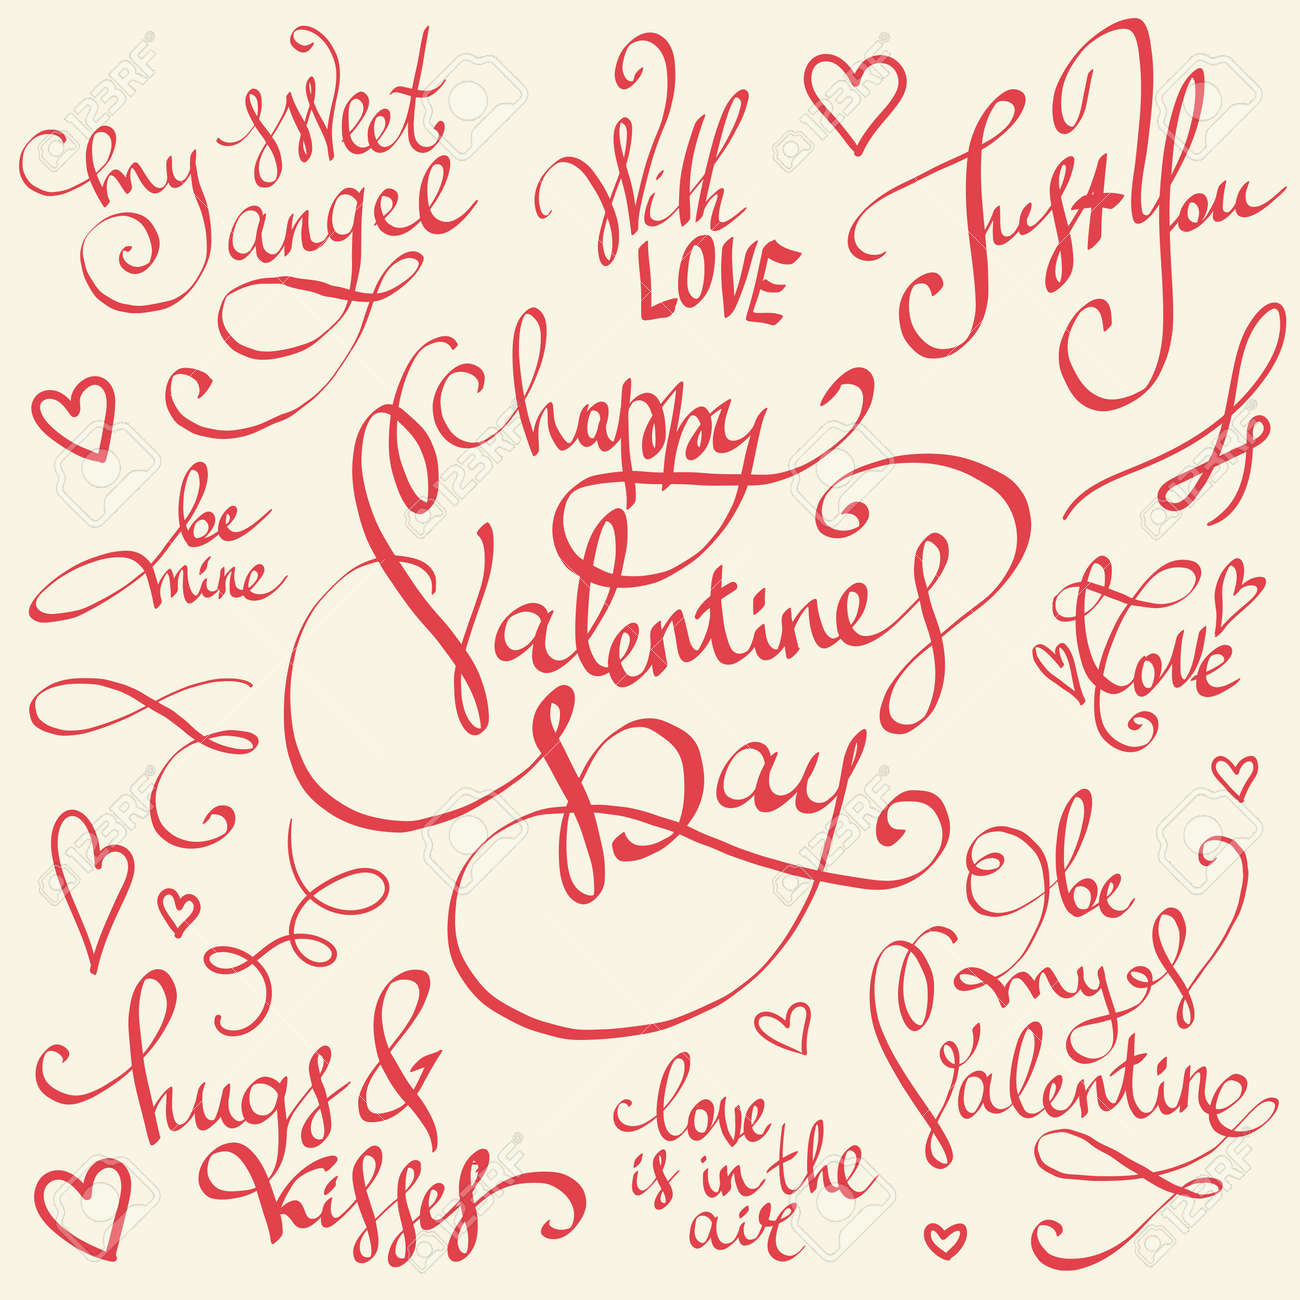 my sweet
angel
With
LOVE
Just You
happy
Valentines
Day
be
mine
Love
be
my
Valentine
hugs &
kisses
love
is in the
air
123RF